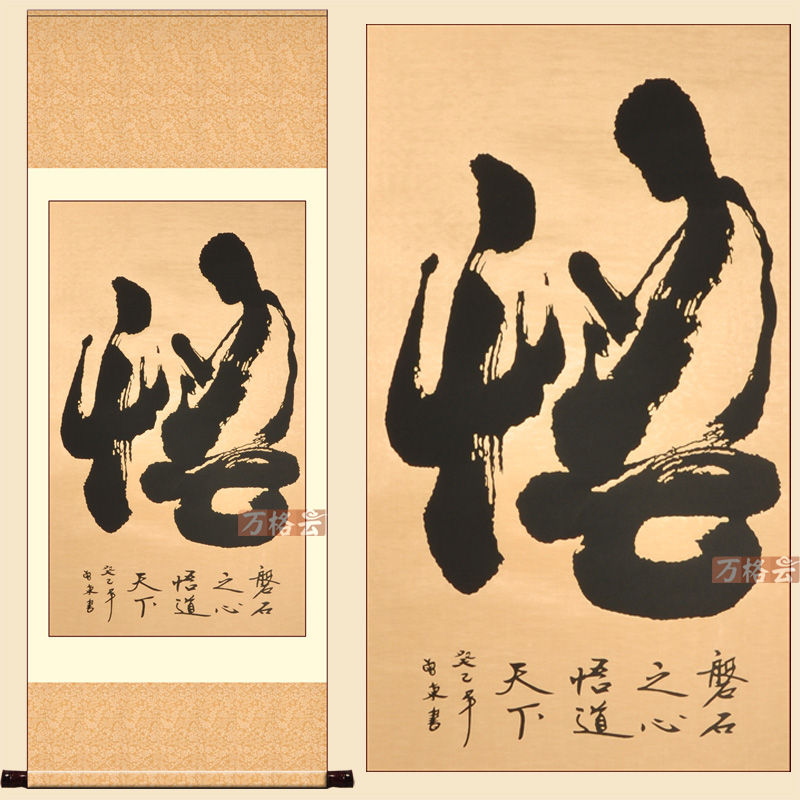 悟
磐石
之心
悟道
天下
癸巳年
万格云
悟
磐石
之心
悟道
天下
癸巳年
万格云